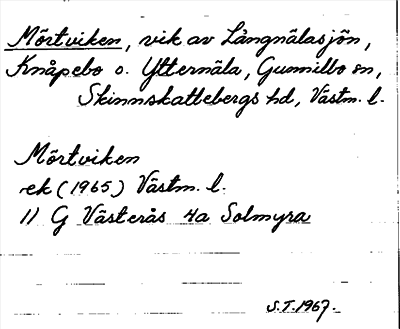 Mörtviken, vik av Långnälasjön,
Knåpebo o. Ytternäla, Gunnilbo sn,
Skinnskattebergs hd, Västm. l.
Mörtviken
ek (1965) Västm. l.
11 G Västerås 4a Solmyra
S.T. 1967.